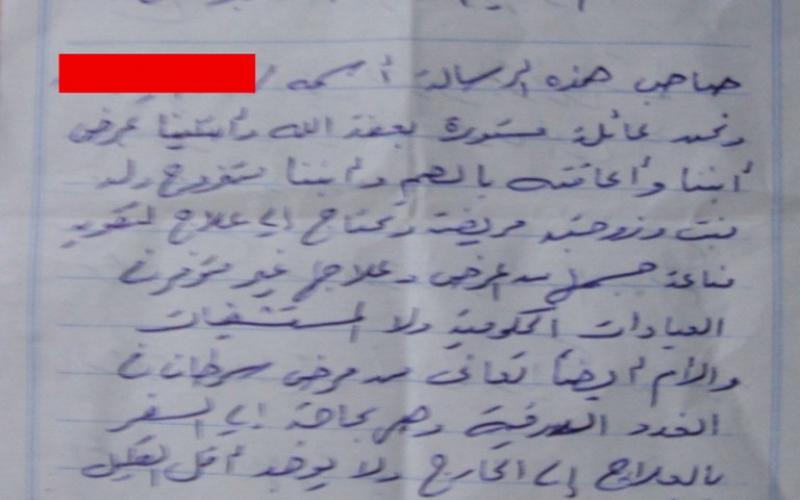 صاحب هذه الرسالة أسمه /
ونحن عائلة مستورة بعفة الله وأبتلينا بمرض
أبننا وأعاقته بالصم وأبننا متزوج وله
بنت وزوجته مريضة وتحتاج إلى علاج لتقوية
مناعة جسمها من المرض وعلاجها غير متوفر في
العيادات الحكومية ولا المستشفيات
والأم أيضاً تعاني من مرض سرطان في
الغدد الدرقية وهي بحاجة إلى السفر
بالعلاج إلى الخارج ولا يوجد أقل القليل